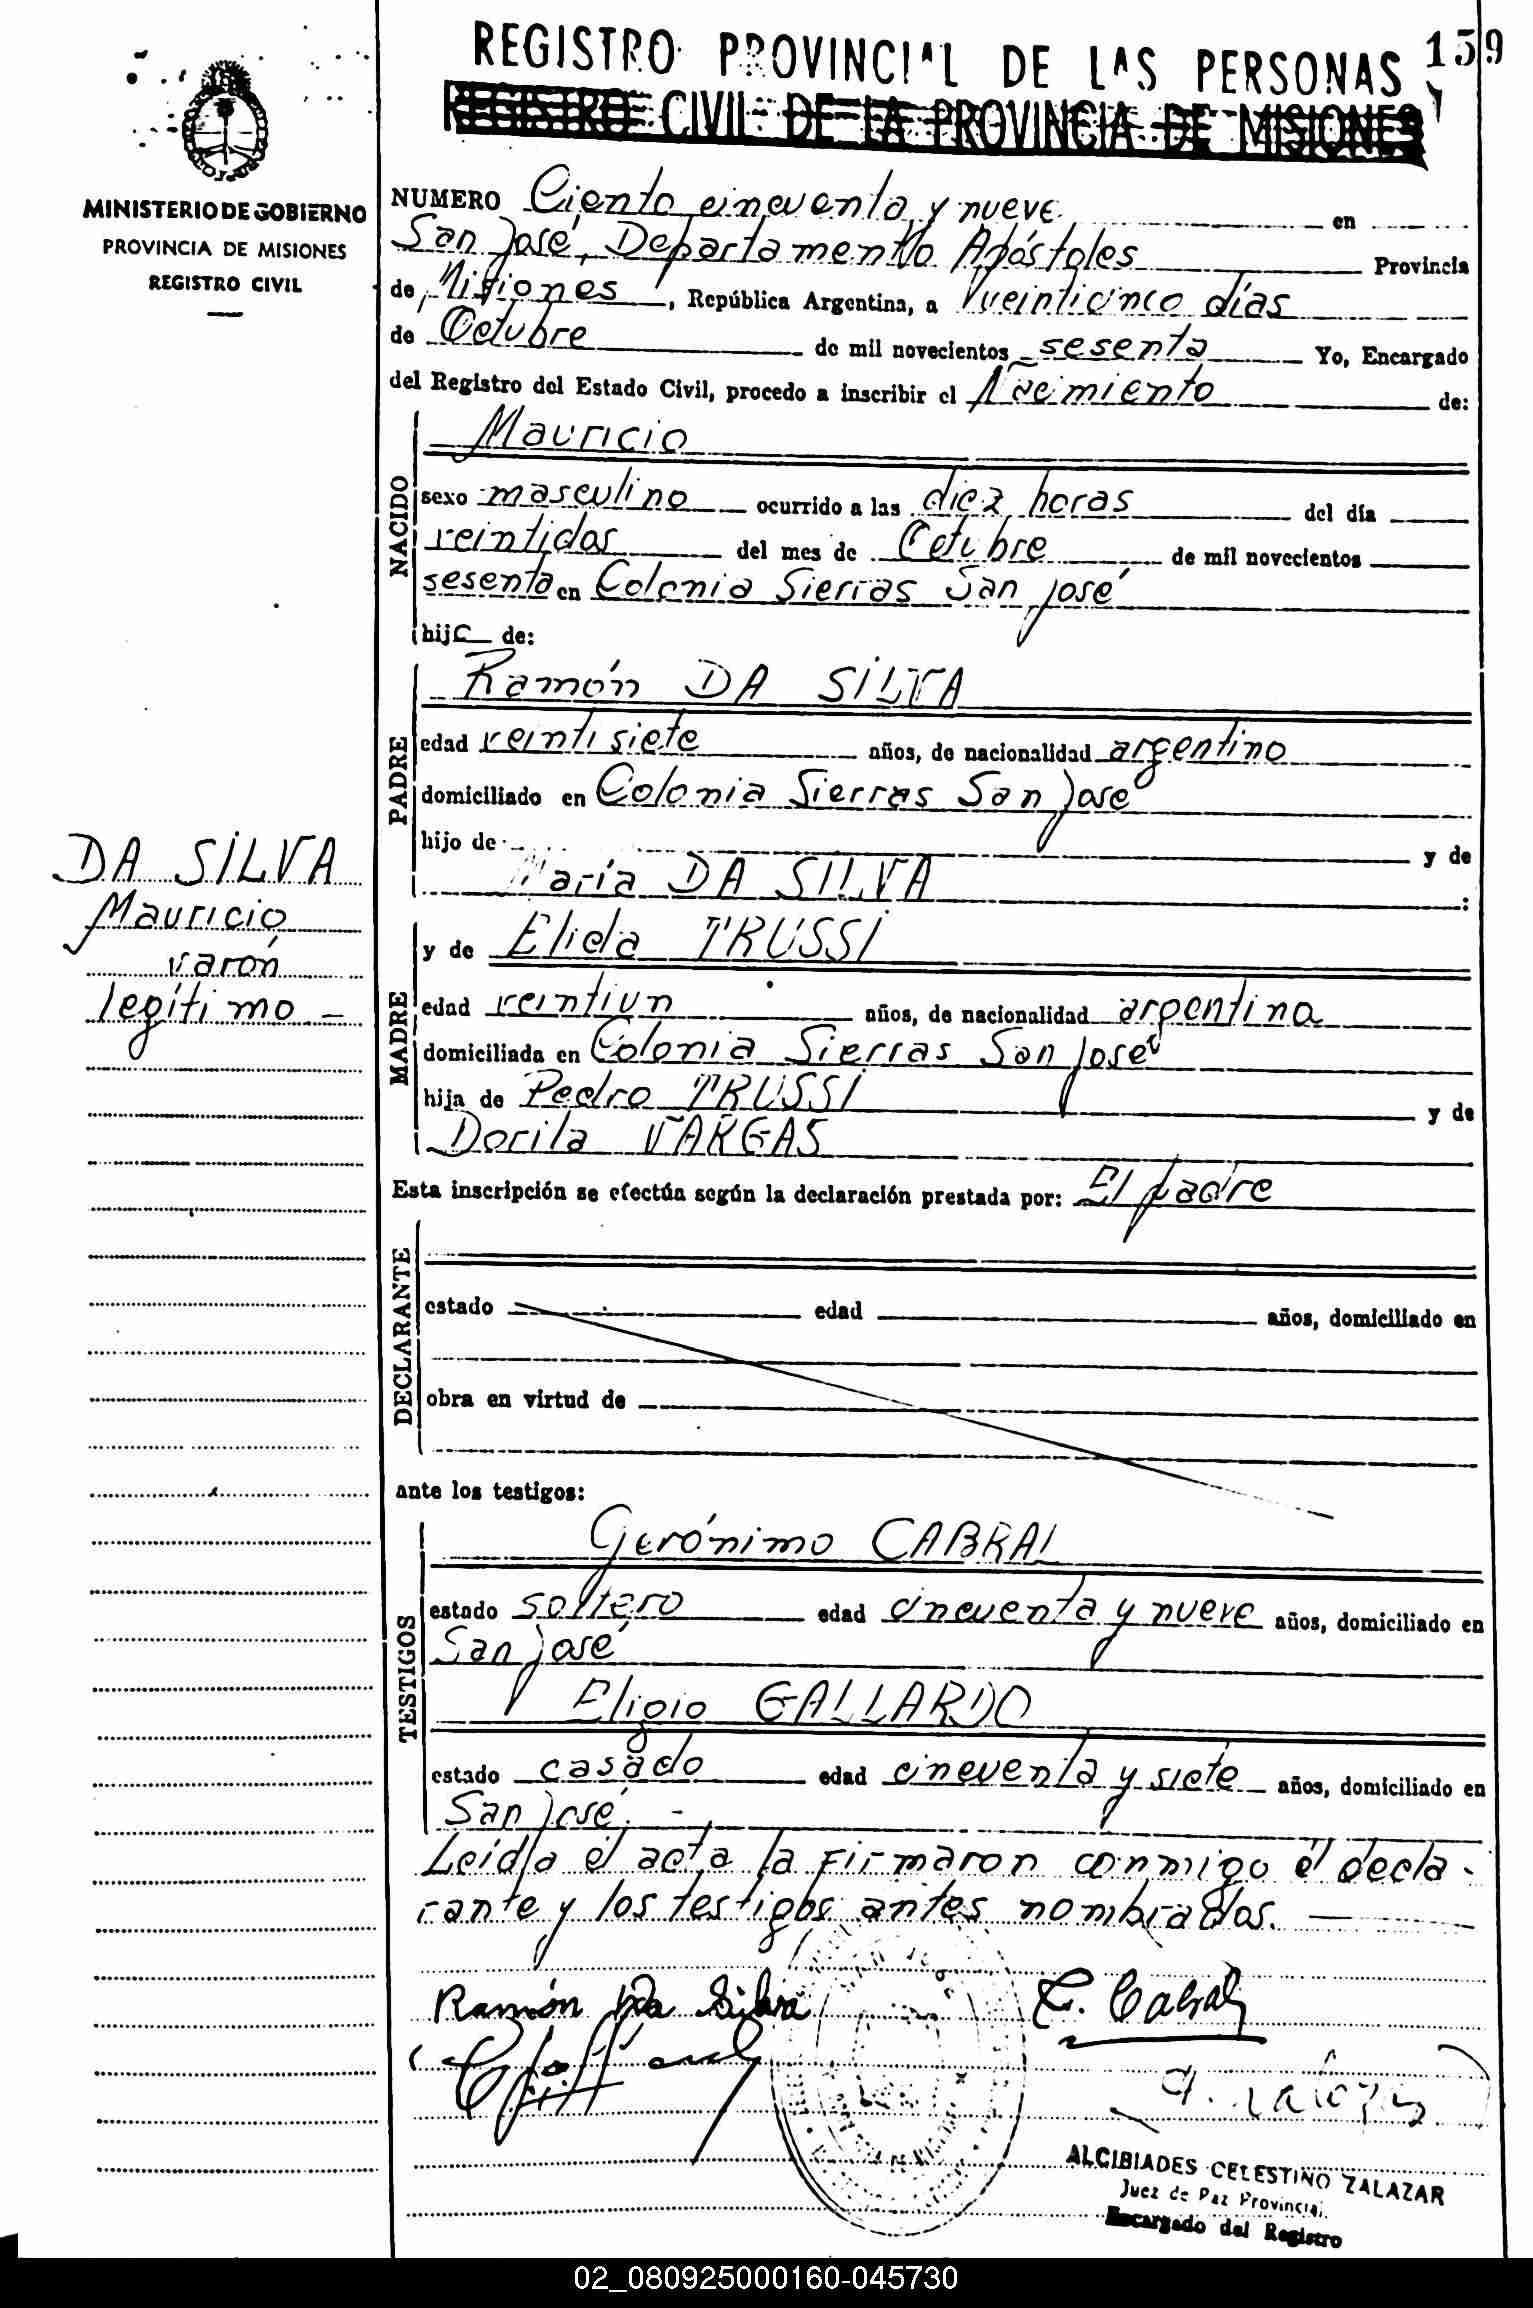 REGISTRO PROVINCIAL DE LAS PERSONAS
159
REGISTRO CIVIL DE LA PROVINCIA DE MISIONES
MINISTERIO DE GOBIERNO
PROVINCIA DE MISIONES
REGISTRO CIVIL
NUMERO Ciento cincuenta y nueve en
San José, Departamento Apóstoles Provincia
de Misiones, República Argentina, a veinticinco días
de Octubre de mil novecientos sesenta Yo, Encargado
del Registro del Estado Civil, procedo a inscribir el Nacimiento de:
NACIDO
Mauricio
sexo masculino ocurrido a las diez horas del día
veintidos del mes de Octubre de mil novecientos
sesenta en Colonia Sierras San José
hijo de:
PADRE
Ramón DA SILVA
edad veintisiete años, de nacionalidad argentino
domiciliado en Colonia Sierras San José
hijo de y de
María DA SILVA :
DA SILVA
Mauricio
varón
legítimo.-
MADRE
y de Elida TRUSSI
edad veintiun años, de nacionalidad argentina
domiciliada en Colonia Sierras San José
hija de Pedro TRUSSI y de
Dorila VARGAS
Esta inscripción se efectúa según la declaración prestada por: El padre
DECLARANTE
estado edad años, domiciliado en
obra en virtud de
ante los testigos:
TESTIGOS
Gerónimo CABRAL
estado soltero edad cincuenta y nueve años, domiciliado en
San José
Eligio GALLARDO
estado casado edad cincuenta y siete años, domiciliado en
San José.-
Leída el acta la firmaron conmigo el decla-
rante y los testigos antes nombrados.
Ramón Da Silva G. Cabral
ALCIBIADES CELESTINO ZALAZAR
Juez de Paz Provincial
Encargado del Registro
02_080925000160-045730